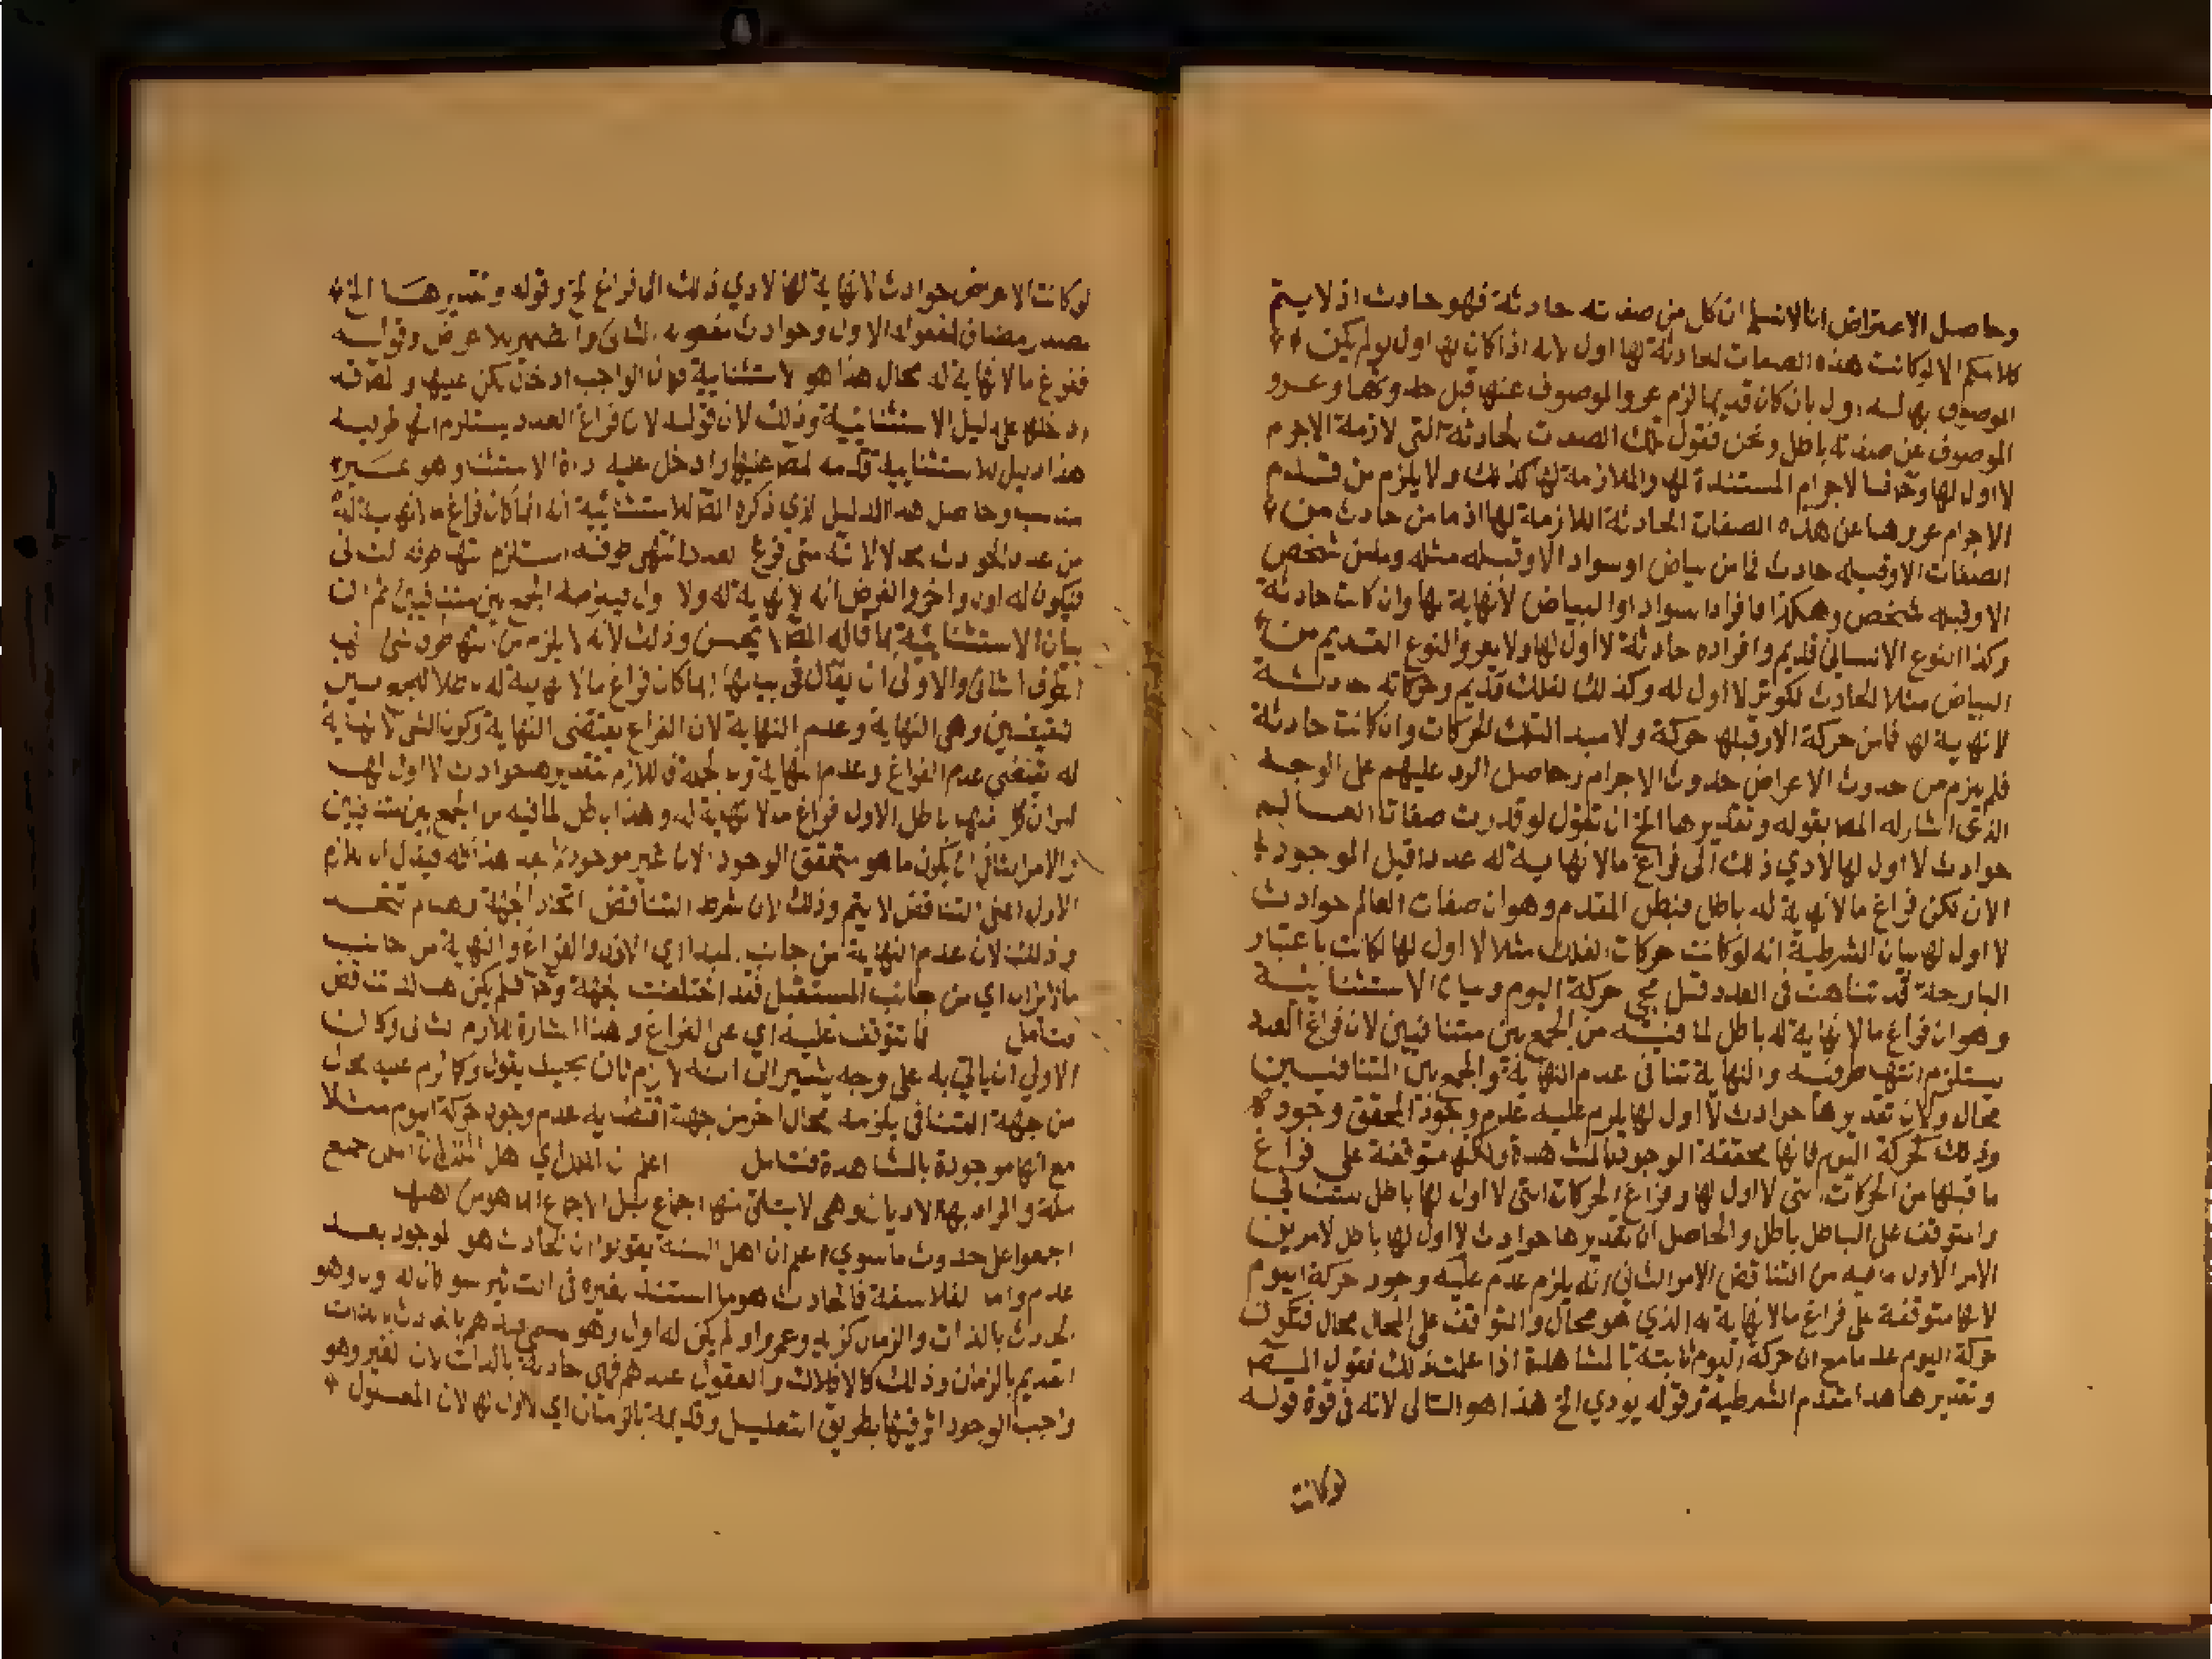 وحاصل الاعتراض انا لا نسلم ان كل من صفاته حادثة فهو حادث اذ لا يتم
كلامكم الا لو كانت هذه الصفات الحادثة لها اول لانه اذا كان لها اول ولم يكن
الموصوف بها له اول بان كان قديما لزم عرو الموصوف عنها قبل حدوثها وعرو
الموصوف عن صفته باطل ونحن نقول تلك الصفات الحادثة التي لازمة الاجرام
لا اول لها وح فالاجرام المستندة لها والملازمة لها كذلك ولا يلزم من قدم
الاجرام عروها عن هذه الصفات الحادثة اللازمة لها اذ ما من حادث من
الصفات الا وقبله حادث فما من بياض او سواد الا وقبله مثله وما من شخص
الا وقبله شخص وهكذا فافراد السواد او البياض لا نهاية لها وان كانت حادثة
وكذا النوع الانساني قديم وافراده حادثة لا اول لها ولا يعرو النوع القديم من
البياض مثلا الحادث لكونه لا اول له وكذلك الفلك قديم وحركاته حادثة
لا نهاية لها فما من حركة الا وقبلها حركة ولا مبدا لتلك الحركات وان كانت حادثة
فلم يلزم من حدوث الاعراض حدوث الاجرام وحاصل الرد عليهم على الوجه
الذي اشار له المص بقوله وتقديرها الخ ان تقول لو قدرت صفات العالم
حوادث لا اول لها لادي ذلك الى فراغ مالا نهاية له عددا قبل الموجود
الان لكن فراغ مالا نهاية له باطل فبطل المقدم وهو ان صفات العالم حوادث
لا اول لها بيان الشرطية انه لو كانت حركات الفلك مثلا لا اول لها لكانت باعتبار
البارحة قد تناهت في العدد قبل مجي حركة اليوم وبيان الاستثنائية
وهو ان فراغ مالا نهاية له باطل لما فيه من الجمع بين متنافيين لان فراغ العدد
يستلزم انتهاء طرفيه والنهاية تنافي عدم النهاية والجمع بين المتنافيين
محال ولان تقديرها حوادث لا اول لها يلزم عليه عدم وجود المحقق وجوده
وذلك كحركة اليوم فانها محققة الوجود بالمشاهدة ولكنها متوقفة على فراغ
ما قبلها من الحركات التي لا اول لها وفراغ الحركات التي لا اول لها باطل
والمتوقف على الباطل باطل والحاصل ان تقديرها حوادث لا اول لها باطل لامرين
الامر الاول ما فيه من التناقض الامر الثاني انه يلزم عدم عليه وجود حركة اليوم
لانها متوقفة على فراغ مالا نهاية له الذي هو محال والمتوقف على المحال محال فتكون
حركة اليوم عدما مع ان حركة اليوم ثابتة بالمشاهدة اذا علمت ذلك فقول المص
وتقديرها هذا مقدم الشرطية وقوله يودي الخ هذا هو التالي لانه في قوة قوله
لو كانت
لو كانت الاعراض حوادث لا نهاية لها لادي ذلك الى فراغ الخ وقوله وتقديرها الخ
مصدر مضاف لمفعوله الاول وحوادث مفعوله الثاني والضمير للاعراض وقوله
ففراغ مالا نهاية له محال هذا هو الاستثنائية فكان الواجب ادخال لكن عليها والمص قد
ادخلها على دليل الاستثنائية وذلك لان قوله لان فراغ العدد يستلزم انتهاء طرفيه
هذا دليل للاستثنائية قدمه المص عليها وادخل عليه اداة الاستثناء وهو غير
مناسب وحاصل هذا الدليل الذي ذكره المص للاستثنائية انه انما كان فراغ مالا نهاية له
من عدد الحوادث محالا لانه متى فرغ العدد انتهى طرفه استلزم انتهاء طرفه الثاني
فيكون له اول واخر والفرض انه لا نهاية له ولا اول فيلزم الجمع بين متنافيين ثم ان
بيان الاستثنائية بما قاله المص لا يحسن وذلك لانه لا يلزم من انتهاء طرف شئ انتهاء
الطرف الثاني والاولى ان يقال في بيانها انما كان فراغ مالا نهاية له باطلا للجمع بين
نقيضين وهي النهاية وعدم النهاية لان الفراغ يقتضى النهاية وكون الشئ لا نهاية
له يقتضي عدم الفراغ وعدم النهاية وبالجملة فاللازم لتقديرها حوادث لا اول لها
امران كل منهما باطل الاول فراغ مالا نهاية له وهذا باطل لما فيه من الجمع بين متنافيين
والامر الثاني ان يكون ما هو متحقق الوجود الان غير موجود فيقال ان اللازم
الاول اعني التناقض لا يتم وذلك لان شرط التناقض اتحاد الجهة وهنا لم تتحد
وذلك لان عدم النهاية من جانب المبدا اي الازل والفراغ والنهاية من جانب
مالا يزال اي من جانب المستقبل فقد اختلفت الجهة وح فلم يكن هناك تناقض
فتامل فما تتوقف عليه اي على الفراغ وهذا اشارة للازم الثاني وكان
الاولى ان ياتي به على وجه يشير الى انه لازم ثان بحيث يقول وكما لزم عليه محال
من جهة التنافي يلزمه محال اخر من جهة اقتضائه عدم وجود حركة اليوم مثلا
مع انها موجودة بالمشاهدة فتامل اعلم ان الملل اي اهل الملل اي اهل جميع
ملة والمراد بها الاديان وهي لا يستثنى منها اجماع بل الاجماع انما هو من اهلها
اجمعوا على حدوث ما سوي اعلم ان اهل السنة يقولون ان الحادث هو الموجود بعد
عدم واما الفلاسفة فالحادث هو ما استند لغيره في التاثير سوا كان له اول وهو
الحادث بالذات والزمان كزيد وعمرو او لم يكن له اول وهو مسمى عندهم بالحادث بالذات
القديم بالزمان وذلك كالافلاك والعقول عندهم فهي حادثة بالذات لان الغير وهو
واجب الوجود اثر فيها بطريق التعليل وقديمة بالزمان اي لا اول لها لان المعلول